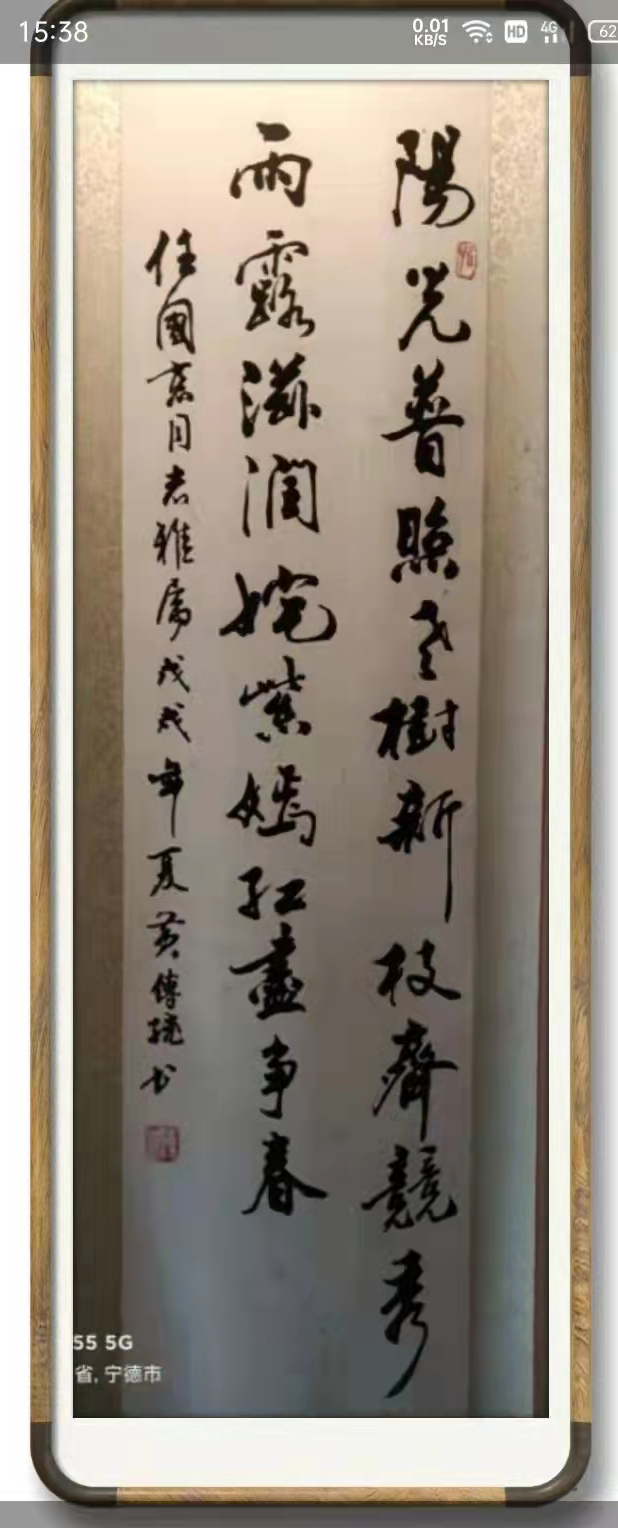 15:38
0.01 KB/S HD 4G 62
陽光普照老樹新枝齊競秀
雨露滋潤姹紫嫣紅盡爭春
任國同志雅屬戊戌年夏黃傳书
55 5G
省, 宁德市